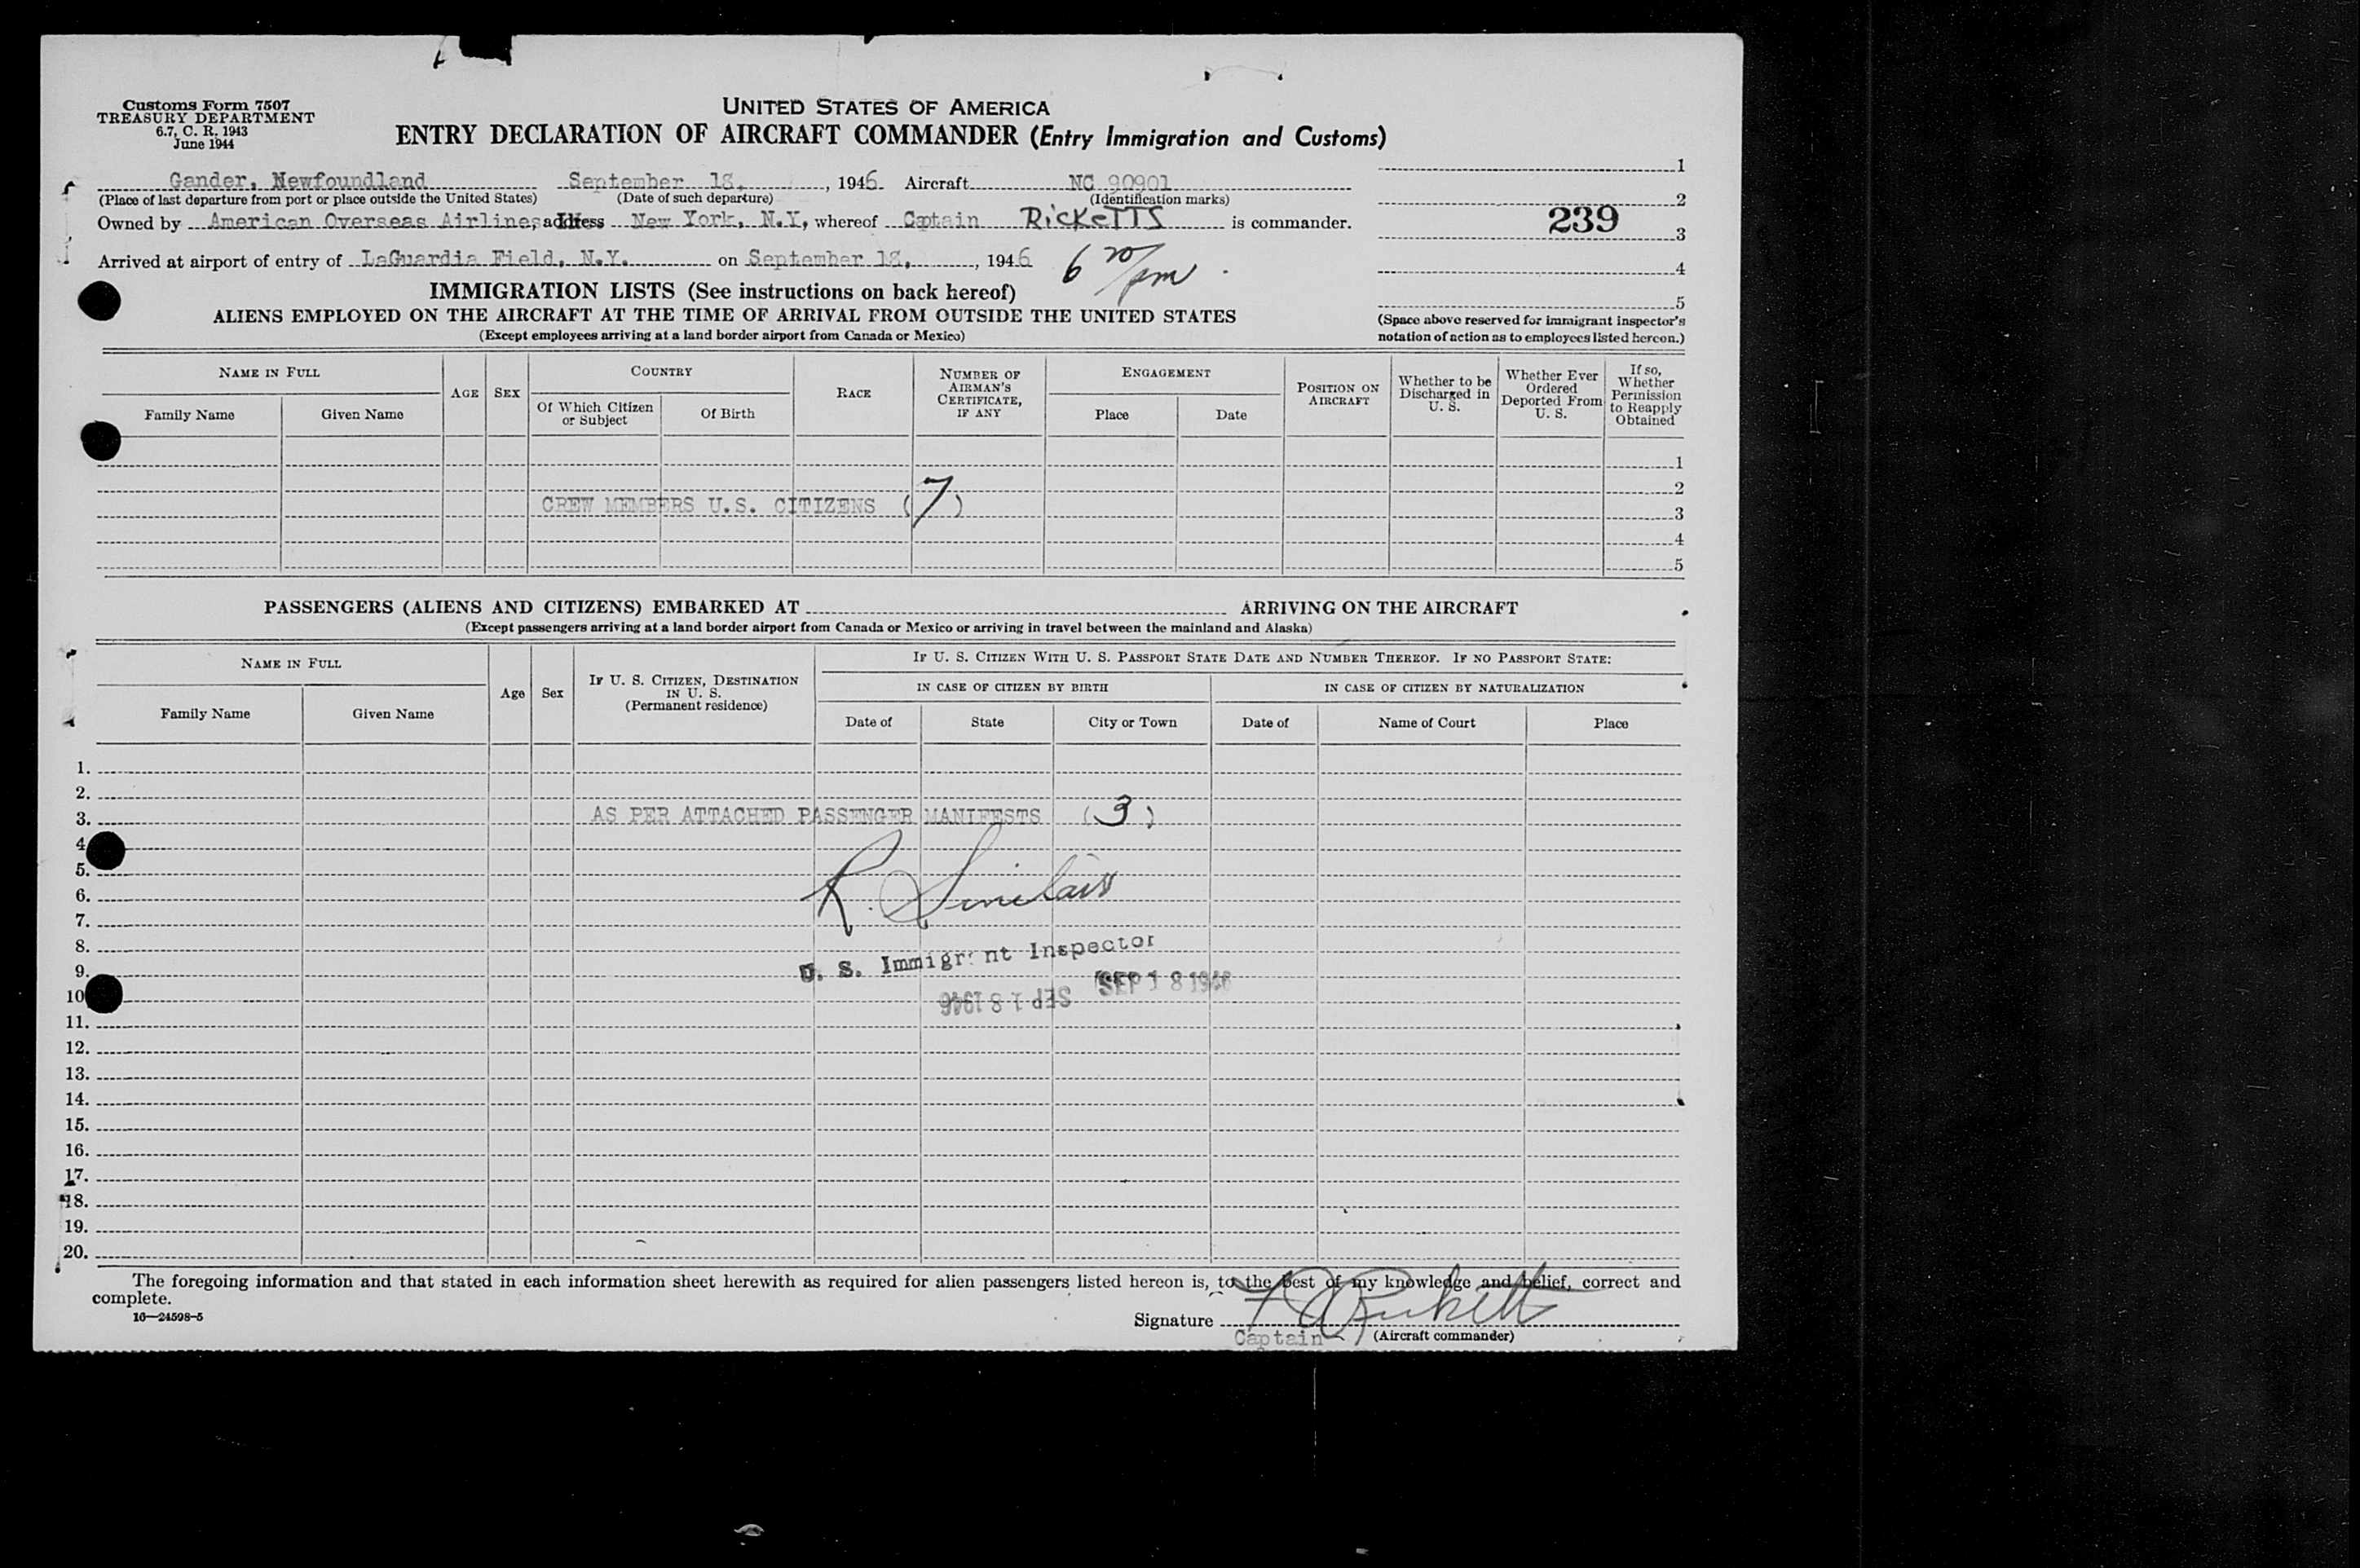 Customs Form 7507
TREASURY DEPARTMENT
6.7, C. R. 1943
June 1944
UNITED STATES OF AMERICA
ENTRY DECLARATION OF AIRCRAFT COMMANDER (Entry Immigration and Customs)
Gander, Newfoundland September 18, , 1946 Aircraft NC 90901
(Place of last departure from port or place outside the United States) (Date of such departure) (Identification marks)
Owned by American Overseas Airlines, address New York, N.Y, whereof Captain RickeTTS is commander.
Arrived at airport of entry of LaGuardia Field, N.Y. on September 18, , 1946 6 20/pm
1
2
3
4
5
239
(Space above reserved for immigrant inspector's
notation of action as to employees listed hereon.)
IMMIGRATION LISTS (See instructions on back hereof)
ALIENS EMPLOYED ON THE AIRCRAFT AT THE TIME OF ARRIVAL FROM OUTSIDE THE UNITED STATES
(Except employees arriving at a land border airport from Canada or Mexico)
NAME IN FULL
Family Name
Given Name
AGE
SEX
COUNTRY
Of Which Citizen
or Subject
Of Birth
RACE
NUMBER OF
AIRMAN'S
CERTIFICATE,
IF ANY
ENGAGEMENT
Place
Date
POSITION ON
AIRCRAFT
Whether to be
Discharged in
U. S.
Whether Ever
Ordered
Deported From
U. S.
If so,
Whether
Permission
to Reapply
Obtained
1
2
CREW MEMBERS U.S. CITIZENS (7)
3
4
5
PASSENGERS (ALIENS AND CITIZENS) EMBARKED AT ARRIVING ON THE AIRCRAFT
(Except passengers arriving at a land border airport from Canada or Mexico or arriving in travel between the mainland and Alaska)
NAME IN FULL
Family Name
Given Name
Age
Sex
IF U. S. CITIZEN, DESTINATION
IN U. S.
(Permanent residence)
IF U. S. CITIZEN WITH U. S. PASSPORT STATE DATE AND NUMBER THEREOF. IF NO PASSPORT STATE:
IN CASE OF CITIZEN BY BIRTH
Date of
State
City or Town
IN CASE OF CITIZEN BY NATURALIZATION
Date of
Name of Court
Place
1.
2.
3. AS PER ATTACHED PASSENGER MANIFESTS (3)
4
5.
6. R. Sinclair
7.
8.
9. U. S. Immigrant Inspector
SEP 18 1946
10 SEP 18 1946
11.
12.
13.
14.
15.
16.
17.
18.
19.
20.
The foregoing information and that stated in each information sheet herewith as required for alien passengers listed hereon is, to the best of my knowledge and belief, correct and
complete.
16—24598-5
Signature Ricketts
Captain (Aircraft commander)